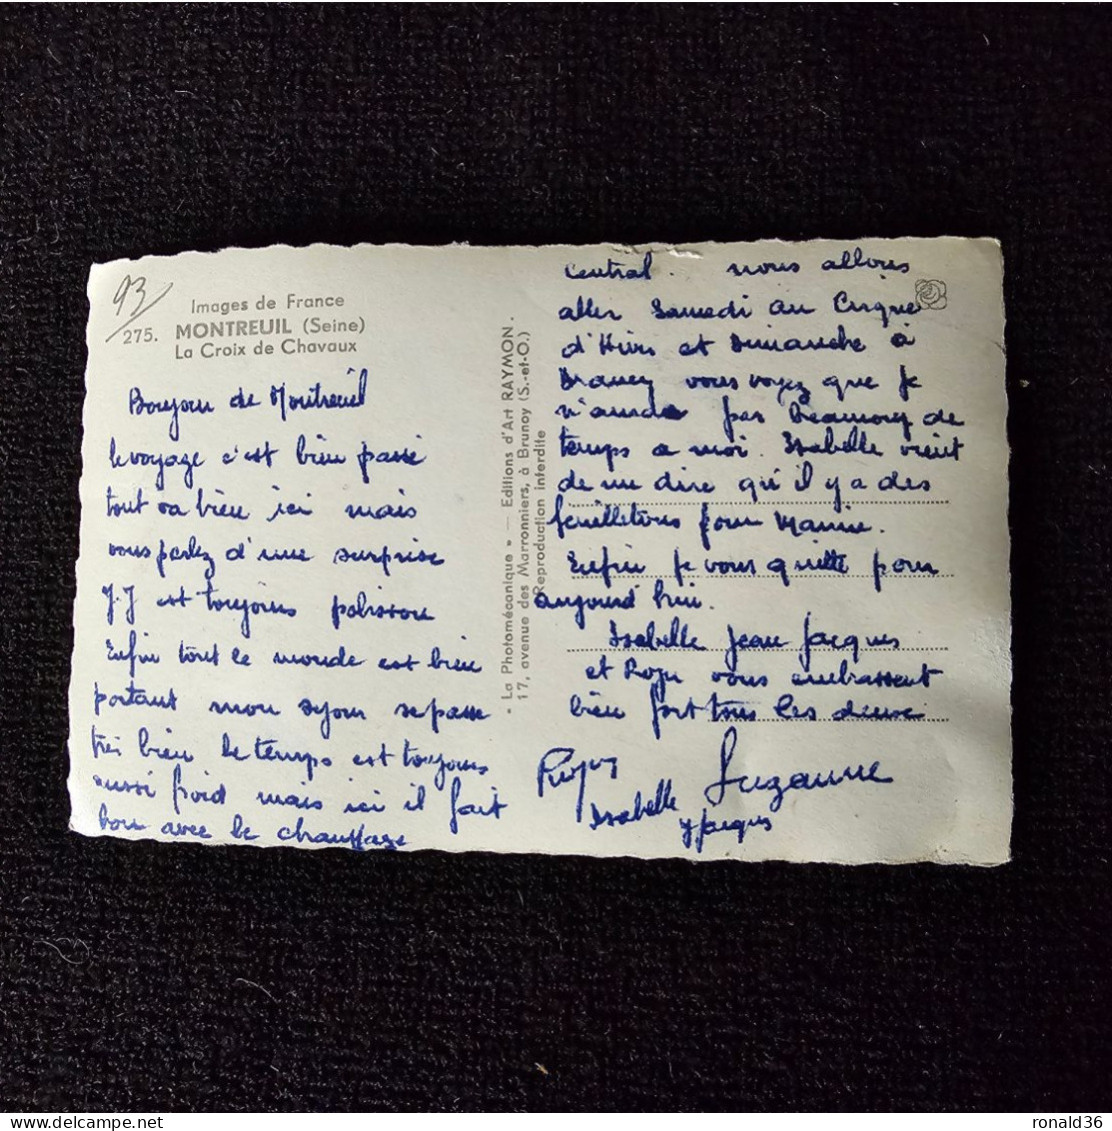 93
Images de France
275. MONTREUIL (Seine)
La Croix de Chavaux
Bonjour de Montreuil
le voyage c'est bien passé
tout va bien ici mais
vous parlez d'une surprise
J.J est toujours polisson
Enfin tout le monde est bien
portant mon séjour se passe
très bien le temps est toujours
aussi froid mais ici il fait
bon avec le chauffage
« La Photomécanique » — Editions d'Art RAYMON.
17, avenue des Marronniers, à Brunoy (S.-et-O.)
Reproduction interdite
central. nous allons
aller Samedi au Cirque
d'Hivers et Dimanche à
vous voyez que je
n'aurde pas beaucoup de
temps a moi. Isabelle vient
de me dire qu'il y a des
feuilletons pour Mamie.
Enfin je vous quitte pour
aujourd'hui.
Isabelle Jean Jacques
et Roger vous embrassent
bien fort tous les deux
Roger Suzanne
Isabelle
JJacques
ronald36